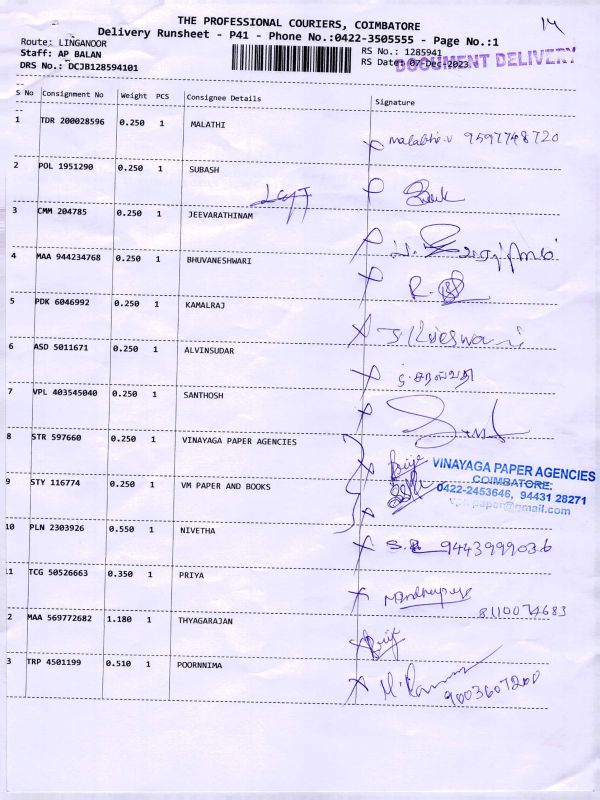 14
THE PROFESSIONAL COURIERS, COIMBATORE
Delivery Runsheet - P41 - Phone No.:0422-3505555 - Page No.:1
Route: LINGANOOR
RS No.: 1285941
Staff: AP BALAN
RS Date: 07-Dec-2023
DOCUMENT DELIVERY
DRS No.: DCJB128594101
S No Consignment No Weight PCS Consignee Details Signature
1 TDR 200028596 0.250 1 MALATHI
Malathi.V 9597748720
2 POL 1951290 0.250 1 SUBASH
3 CMM 204785 0.250 1 JEEVARATHINAM
4 MAA 944234768 0.250 1 BHUVANESHWARI
R.
5 PDK 6046992 0.250 1 KAMALRAJ
6 ASD 5011671 0.250 1 ALVINSUDAR
சரஸ்வதி
7 VPL 403545040 0.250 1 SANTHOSH
8 STR 597660 0.250 1 VINAYAGA PAPER AGENCIES
Priya
VINAYAGA PAPER AGENCIES
COIMBATORE.
0422-2453646, 94431 28271
9 STY 116774 0.250 1 VM PAPER AND BOOKS
10 PLN 2303926 0.550 1 NIVETHA
9443999036
11 TCG 50526663 0.350 1 PRIYA
8110074683
2 MAA 569772682 1.180 1 THYAGARAJAN
3 TRP 4501199 0.510 1 POORNNIMA
9003607200